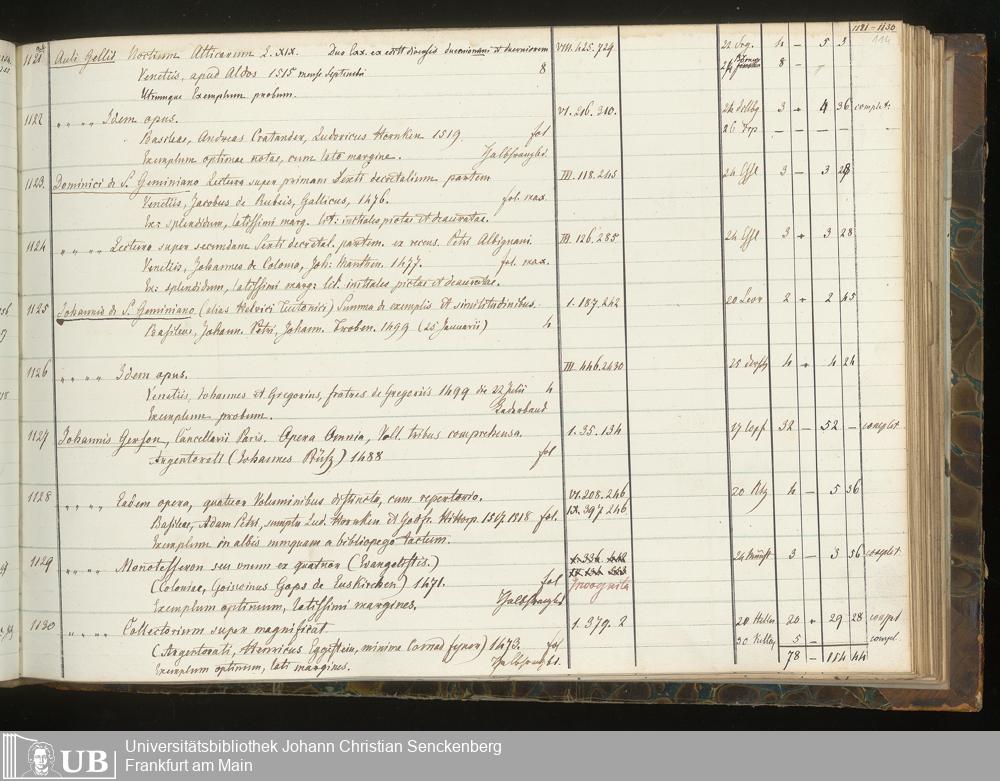 1121–1130
114
1121 Auli Gellii Noctium Atticarum L. XIX. Duo Exx. ex editt diversis VIII. 425. 729 22 4 – 5 3
Venetiis, apud Aldos 1515 mense Septembri 8 24 8 –
Utrumque Exemplum probum.
1122 " " " " Idem opus. VI. 216. 310. 24 3 + 4 36 complet:
Basileae, Andreas Cratander, Ludovicus Hornken 1519. fol 26 – – – –
Exemplum optimae notae, cum lato margine. Halbfranzbd.
1123. Dominici de S. Geminiano Lectura super primam Sexti decretalium partem III. 118. 245 24 3 – 3 28
Venetiis, Jacobus de Rubeis, Gallicus, 1476. fol. max.
Ex: splendidum, latissimi marg. lit: initiales pictae et deauratae.
1124 " " " " Lectura super secundam Sexti decretal. partem. ex recens. Petri Albignani. III. 126. 285 24 3 + 3 28
Venetiis, Johannes de Colonia, Joh: Manthen. 1477. fol. max.
Ex: splendidum, latissimi marg: lit. initiales pictae et deauratae.
1125 Johannis de S. Geminiano (alias Helvici Teutonici) Summa de exemplis et similitudinibus. I. 187. 242 20 2 + 2 45
Basileae, Johann. Petri, Johann. Froben. 1499 (25 Januarii) 4
1126 " " " " Idem opus. III. 446. 2430 25 4 + 4 24
Venetiis, Johannes et Gregorius, fratres de Gregoriis 1499 die 22 Julii 4
Exemplum probum. Lederband
1127 Johannis Gerson, Cancellarii Paris. Opera Omnia, Voll. tribus comprehensa. I. 35. 134 17 32 – 52 – complit
Argentorati (Johannes Rüsz) 1488 fol
1128 " " " " Eadem opera, quatuor Voluminibus distincta, cum repertorio. VI. 208. 246 20 4 – 5 36
Basileae, Adam Petri, sumptu Lud. Hornken et Godfr. Hittorp. 1517. 1518 fol. IX. 397 246
Exemplum in albis nunquam a bibliopego tactum.
1129 " " " " Monotessaron seu unum ex quatuor (Evangelistis.) 24 3 – 3 56 complit
(Coloniae, Goiswinus Gops de Euskirchen) 1471. fol Incognita
Exemplum optimum, latissimi margines. Halbfranzbd
1130 " " " " Collectorium super magnificat. I. 379. 2 20 Heller 20 + 29 28 compt
(Argentorati, Henricus Eggestein, minime Conrad fyner) 1473. fol 30 Keller 5 – compl.
Exemplum optimum, lati margines. Halbfranzbd. 78 – 114 44
UB
Universitätsbibliothek Johann Christian Senckenberg
Frankfurt am Main